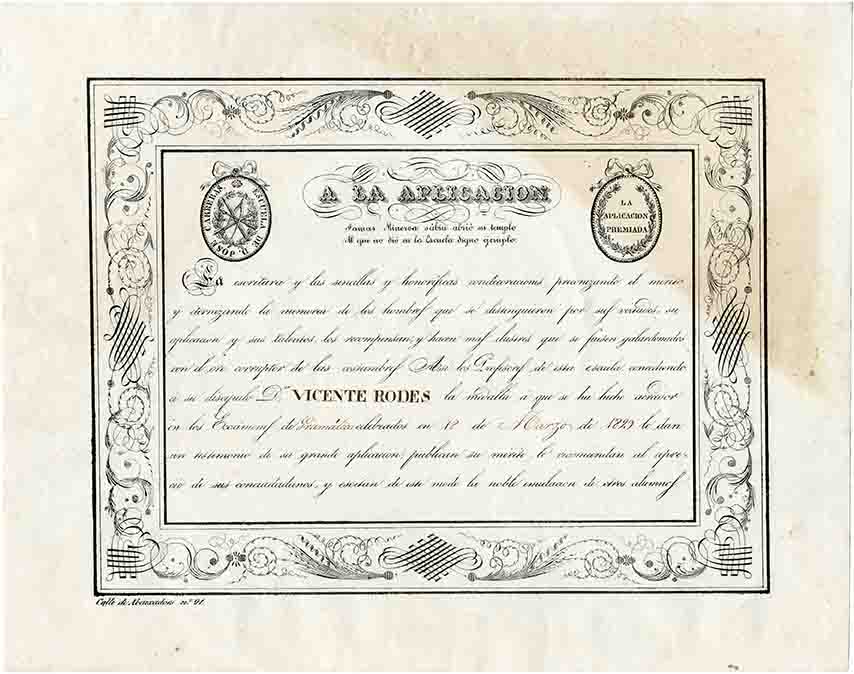 ESCUELA DE D. JOSE CARRERAS
A LA APLICACION
LA
APLICACION
PREMIADA
Jamas Minerva sabia abrió su templo
Al que no dió en la Escuela digno ejemplo.
La escritura y las sencillas y honoríficas condecoraciones preconizando el merito
y eternizando la memoria de los hombres que se distinguieron por sus virtudes, su
aplicacion y sus talentos, los recompensan, y hacen mas ilustres que si fuesen galardonados
con el oro corruptor de las costumbres Asi los Profesores de esta escuela concediendo
a su discipulo D.n VICENTE RODES la medalla á que se ha hecho acredor
en los Exámenes de Gramática celebrados en 18 de Marzo de 1829 le dan
un testimonio de su grande aplicacion, publican su merito le recomiendan al apre-
cio de sus conciudadanos, y escitan de este modo la noble emulacion de otros alumnos
Calle de Abaixadors n.º 91.